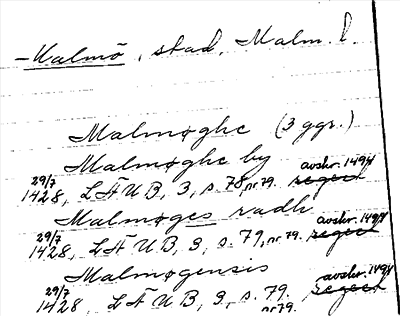 - Malmö, stad, Malm. l.
Malmøghe (3 ggr.)
Malmøghe by
29/7 1428, LÄUB, 3, s. 78, nr 79. avskr. 1494
Malmøges radh
29/7 1428, LÄUB, 3, s. 79, nr 79. avskr. 1494
Malmøgensis
29/7 1428, LÄUB, 3, s. 79. nr 79. avskr. 1494